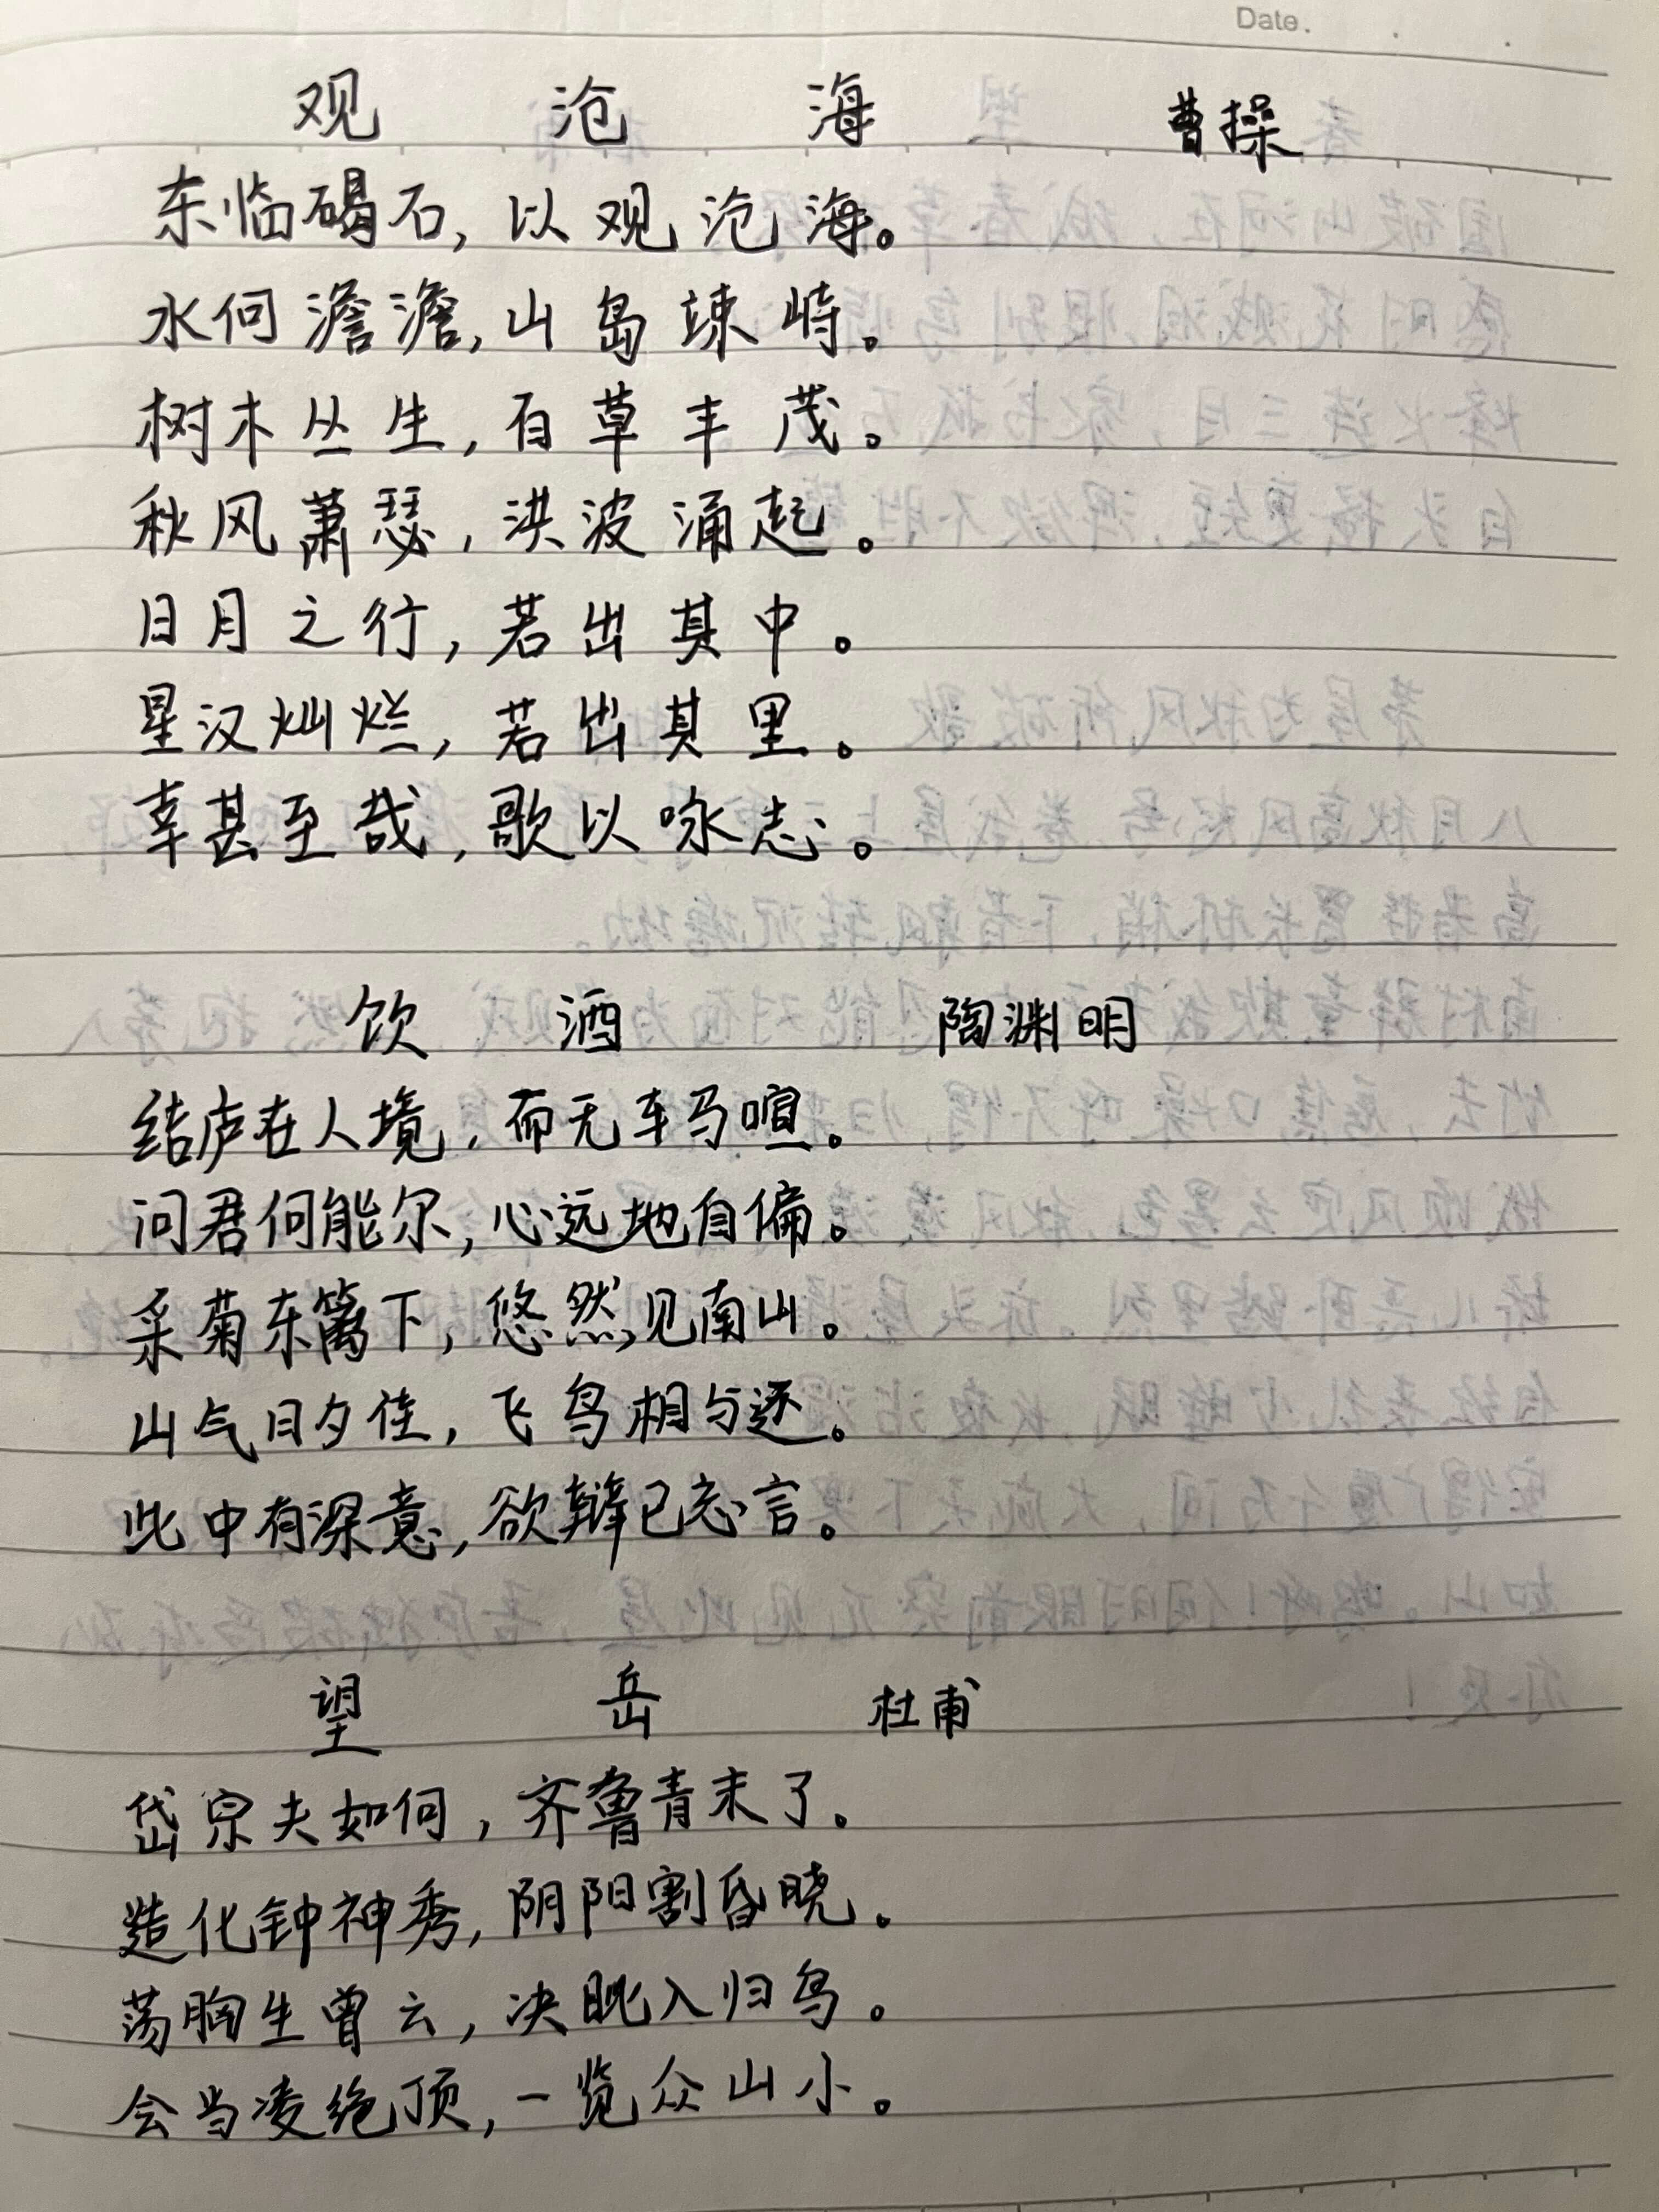 Date.
观沧海 曹操
东临碣石,以观沧海。
水何澹澹,山岛竦峙。
树木丛生,百草丰茂。
秋风萧瑟,洪波涌起。
日月之行,若出其中。
星汉灿烂,若出其里。
幸甚至哉,歌以咏志。
饮酒 陶渊明
结庐在人境,而无车马喧。
问君何能尔,心远地自偏。
采菊东篱下,悠然见南山。
山气日夕佳,飞鸟相与还。
此中有深意,欲辩已忘言。
望岳 杜甫
岱宗夫如何,齐鲁青未了。
造化钟神秀,阴阳割昏晓。
荡胸生曾云,决眦入归鸟。
会当凌绝顶,一览众山小。